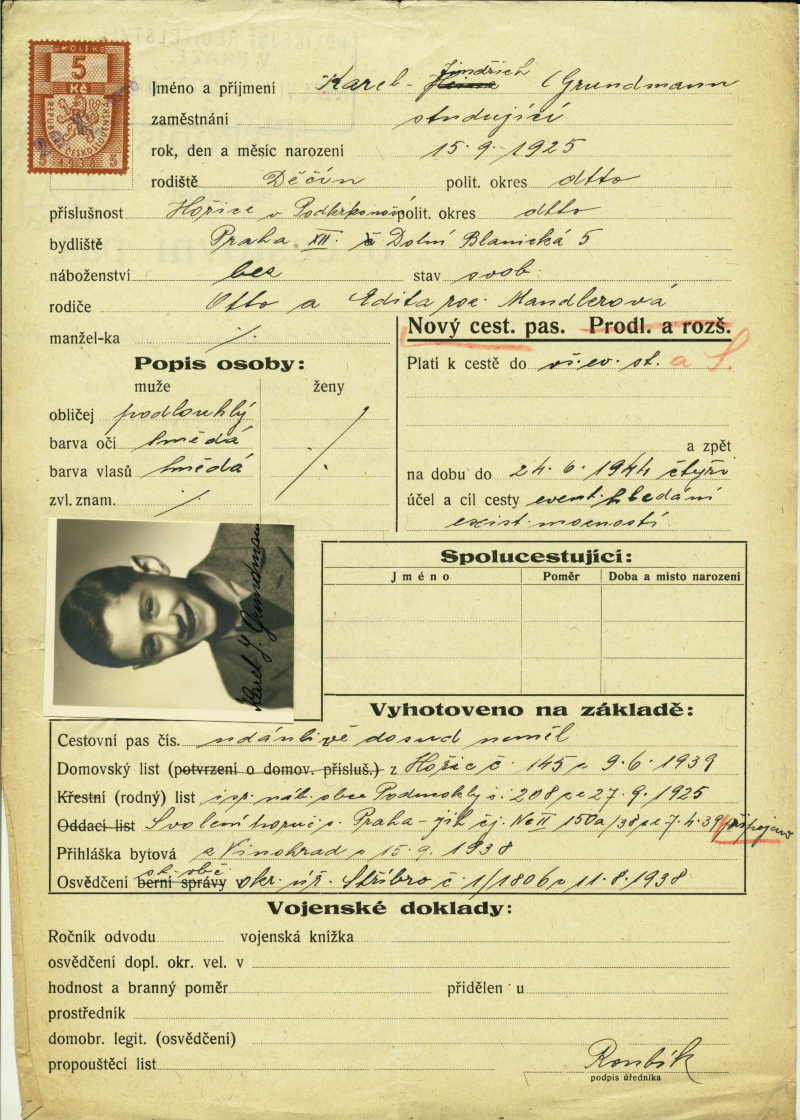 KOLEK
5
Kč
REPUBLIKA ČESKOSLOVENSKÁ
5 5
Jindřich
Jméno a příjmení Karel - Grundmann
zaměstnání studující
rok, den a měsíc narození 15. 9. 1925
rodiště Děčín polit. okres dtto
příslušnost Hořice v Podkrkonoší polit. okres dtto
bydliště Praha XII. Dolní Blanická 5
náboženství bez stav svob.
rodiče Otto a Edita roz. Mandlerová
manžel-ka
Nový cest. pas. Prodl. a rozš.
Popis osoby:
Platí k cestě do vš. ev. st. a S.
muže ženy
obličej podlouhlý
barva očí hnědá
a zpět
barva vlasů hnědá
na dobu do 24. 6. 1944 čtyři
zvl. znam.
účel a cíl cesty event. hledání
exist. mocností
Karel J. Grundmann
Spolucestující:
Jméno Poměr Doba a místo narození
Vyhotoveno na základě:
Cestovní pas čís. udánlivě dosud neměl
Domovský list (potvrzení o domov. přísluš.) z Hořic č. 145 z 9. 6. 1939
Křestní (rodný) list isr. náb. obce Podmokly č. 208 ze 27. 9. 1925
Oddací list Svolení poruč. s. Praha - jih čj. Nc II 150a/38 ze 7. 4. 39 připojeno
Přihláška bytová z Vinohrad z 15. 9. 1938
st. obč.
Osvědčení berní správy v okr. úř. Stříbro č. 1/1806 z 11. 8. 1938
Vojenské doklady:
Ročník odvodu vojenská knížka
osvědčení dopl. okr. vel. v
hodnost a branný poměr přidělen u
prostředník
domobr. legit. (osvědčení)
propouštěcí list Roubík
podpis úředníka